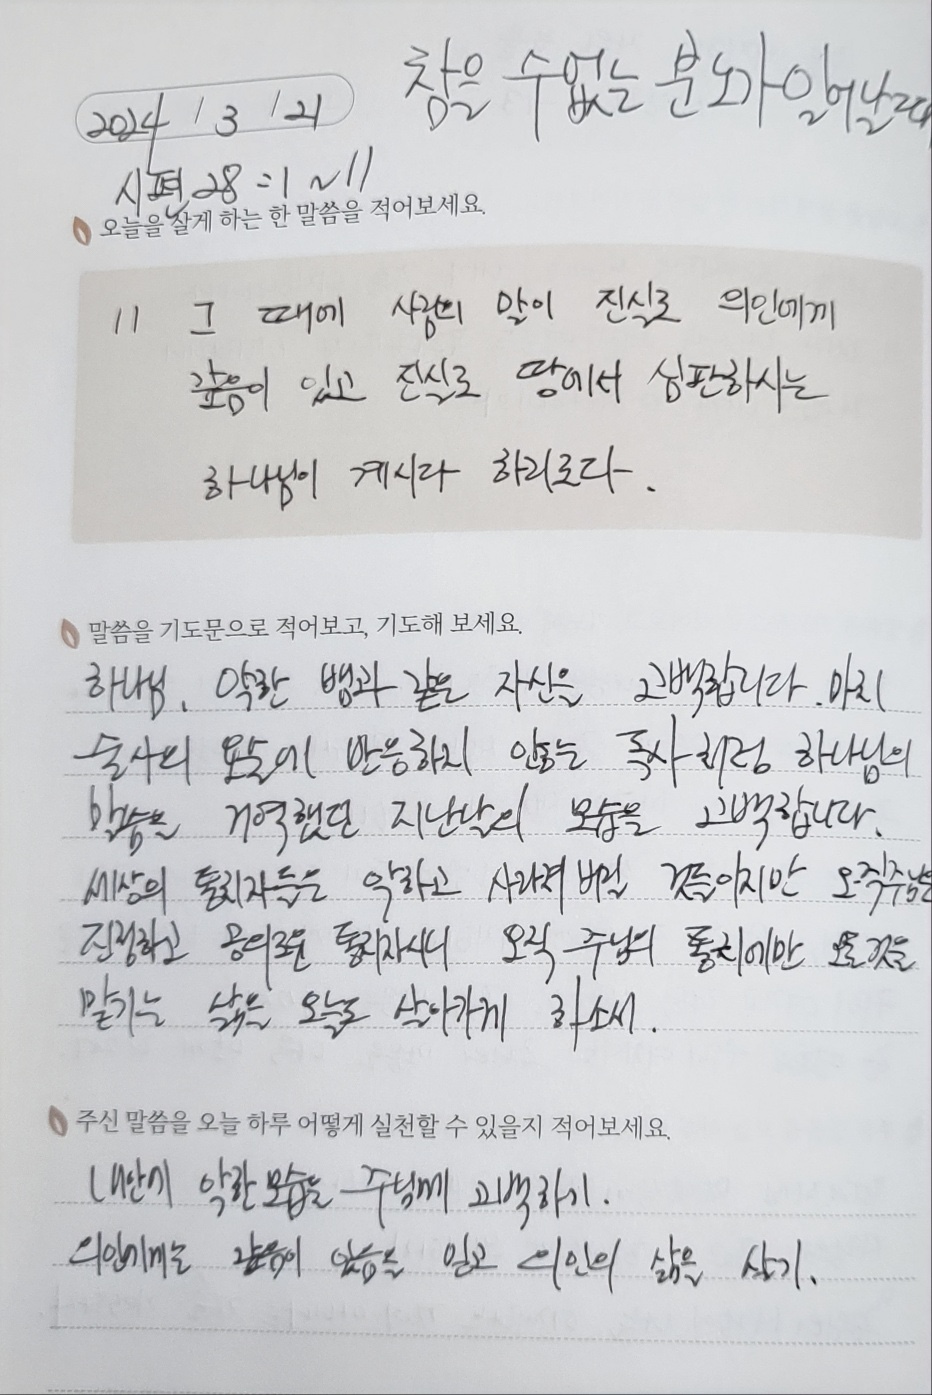 참을 수 없는 분노가 일어날 때
2024 / 3 / 21
시편 28:1~11
오늘을 살게 하는 한 말씀을 적어보세요.
11 그 때에 사람의 말이 진실로 의인에게
갚음이 있고 진실로 땅에서 심판하시는
하나님이 계시다 하리로다.
말씀을 기도문으로 적어보고, 기도해 보세요.
하나님, 악한 뱀과 같은 자신을 고백합니다. 마치
술사의 요술에 반응하지 않는 독사처럼 하나님의
말씀을 거역했던 지난날의 모습을 고백합니다.
세상의 통치자들은 악하고 사라져버릴 것들이지만 오직 주님은
진정하고 공의로운 통치자시니 오직 주님의 통치에만 모든 것을
맡기는 삶을 오늘도 살아가게 하소서.
주신 말씀을 오늘 하루 어떻게 실천할 수 있을지 적어보세요.
내안에 악한 모습을 주님께 고백하기.
의인에게는 갚음이 있음을 믿고 의인의 삶을 살기.